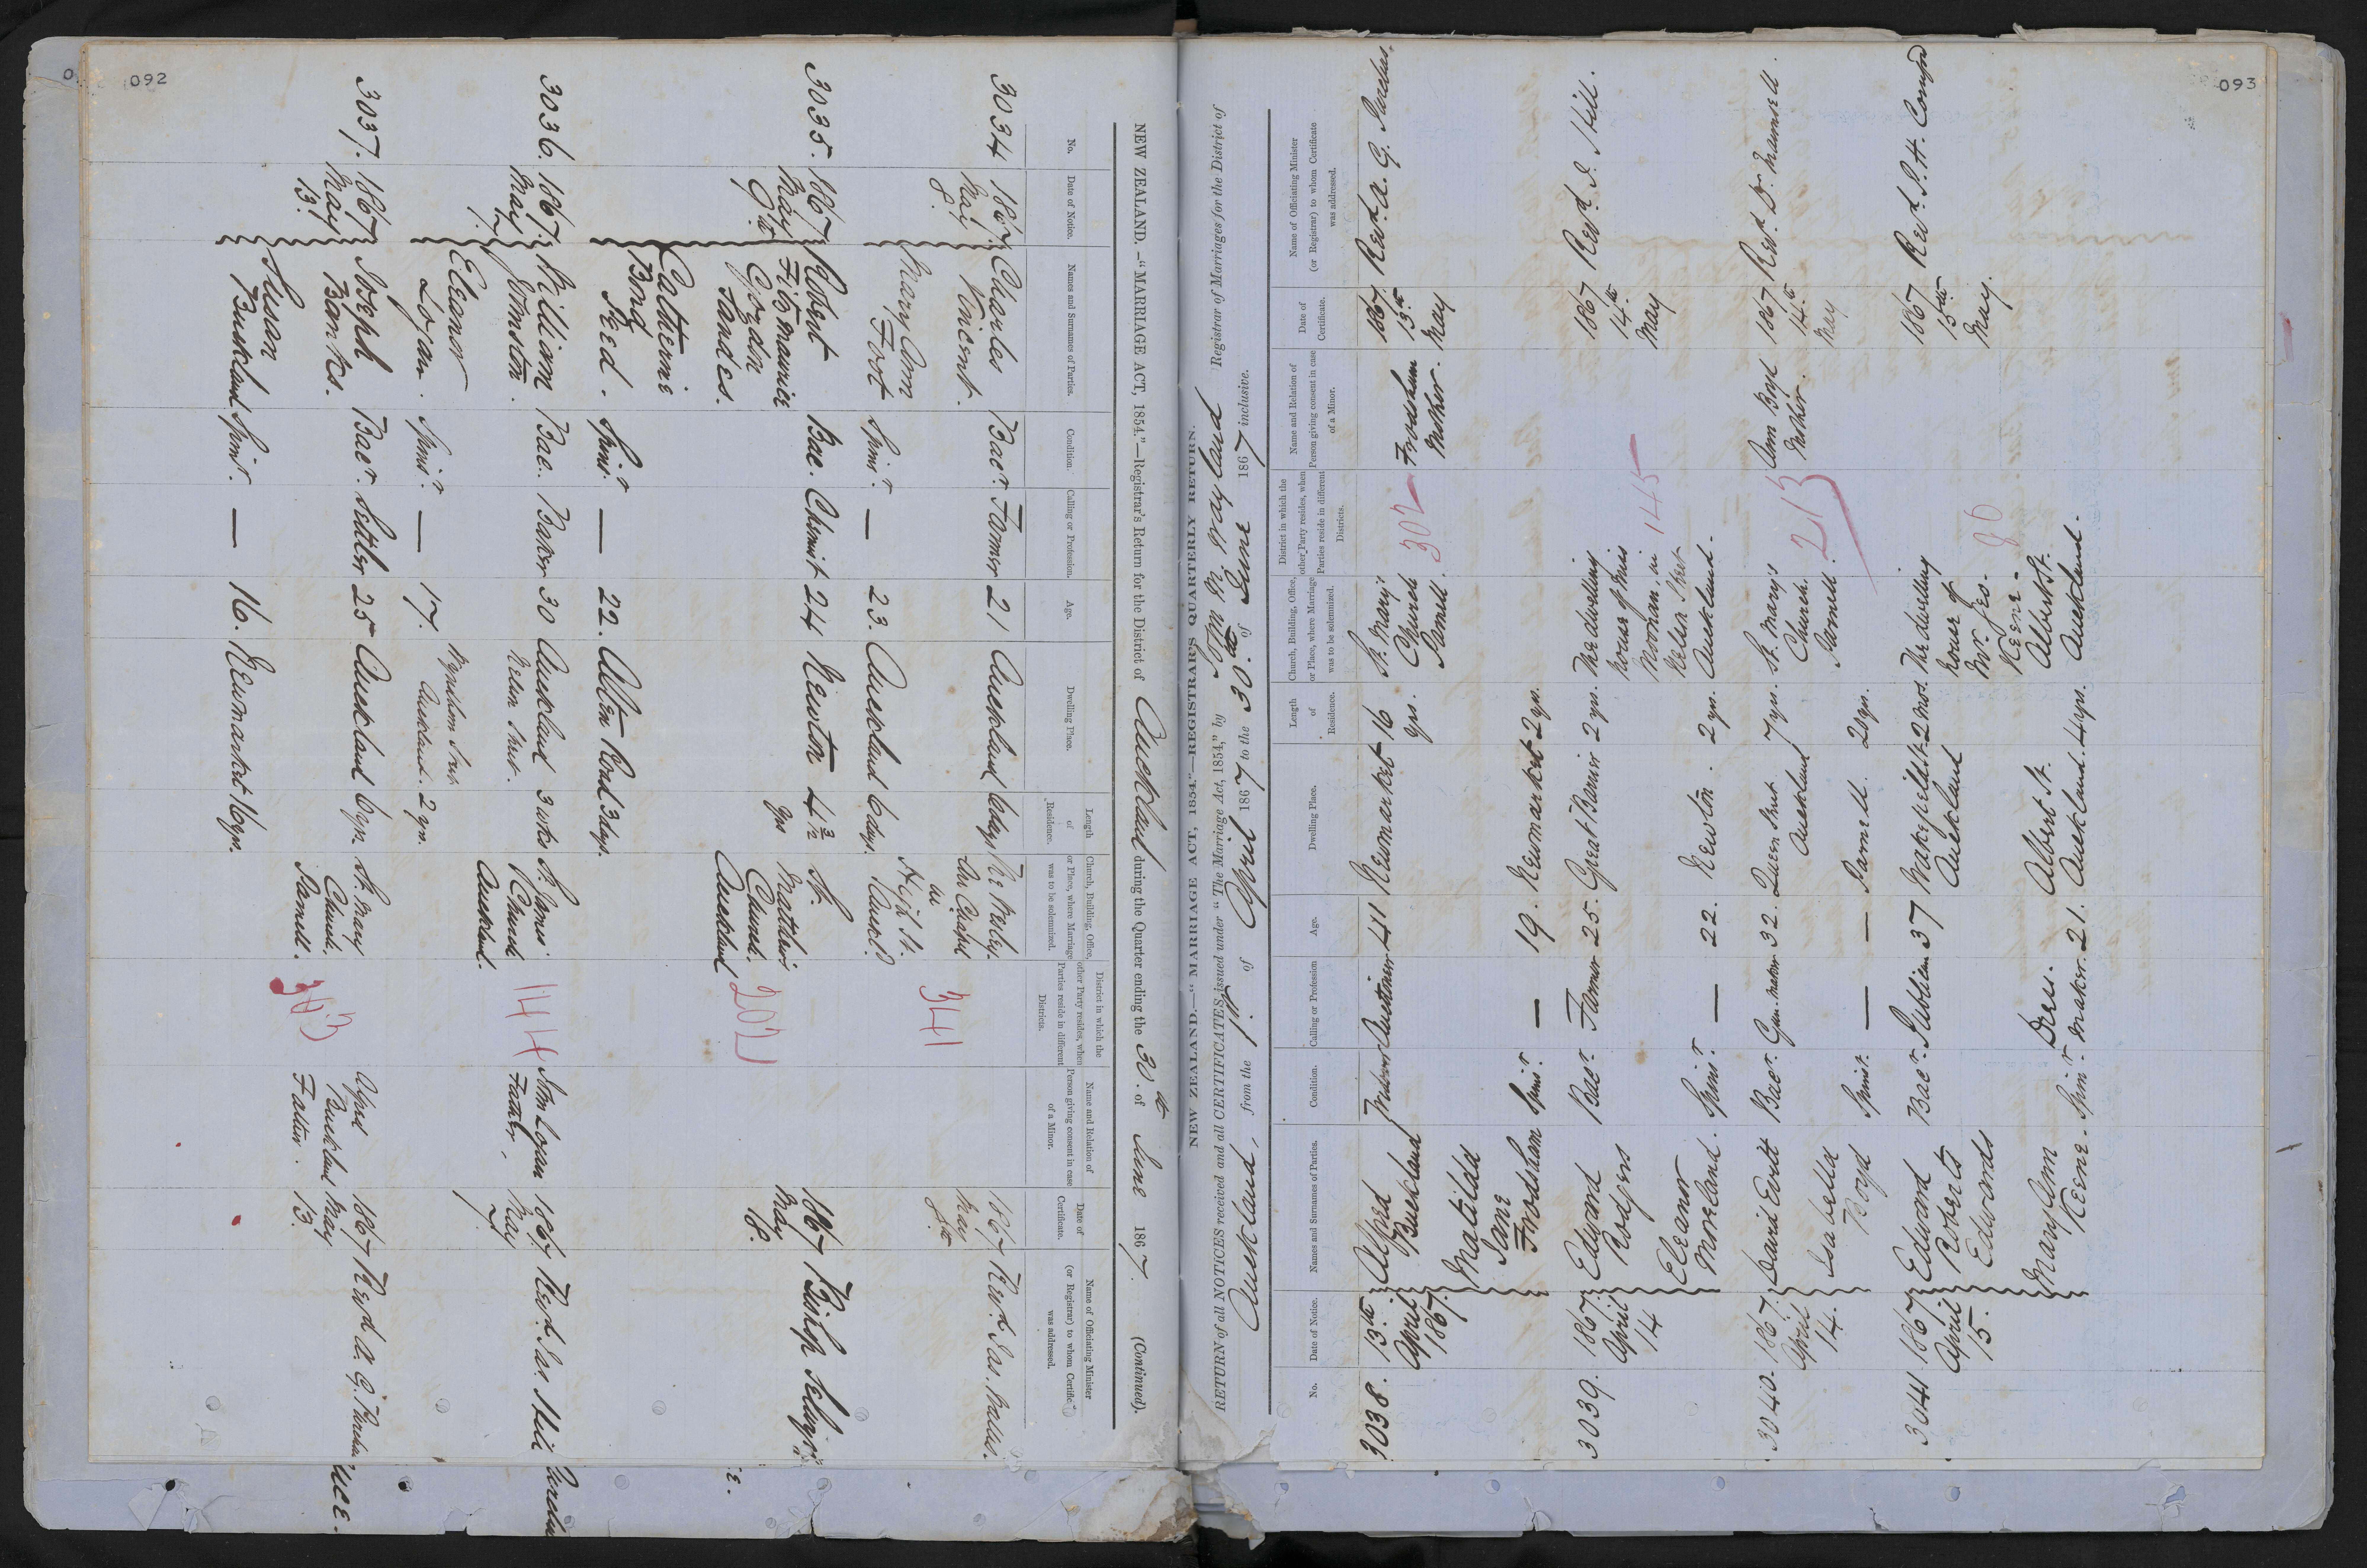 092
NEW ZEALAND.—"MARRIAGE ACT, 1854."—Registrar's Return for the District of Auckland during the Quarter ending the 30th of June 1867. (Continued).
No. Date of Notice. Names and Surnames of Parties. Condition. Calling or Profession. Age. Dwelling Place. Length of Residence. Church, Building, Office, or Place, where Marriage was to be solemnized. District in which the other Party resides, when Parties reside in different Districts. Name and Relation of Person giving consent in case of a Minor. Date of Certificate. Name of Officiating Minister (or Registrar) to whom Certificate was addressed.
3034 1867. Charles Bacr. Farmer 21 Auckland 6 days 1867 Revd. Jas.
May Vincent. in May
8. High St. 8th
341
Mary Ann Spinr. — 23. Auckland 6 days.
Foot
3035. 1867 Robert Bac. Chemist 24 Newton 4 3/12 St. 1867 Bishop
May Fitzmaurice yrs Matthew's May
9th Gordon Church. 18.
Sandes. Auckland
202
Catherine Spinr. — 22. Alton Road 3 days.
Bond
Seed.
3036. 1867. William Bac. Baker 30 Auckland 3 wks St. James' 144 Jno Logan 1867. Revd. Jas. Hill
May Johnston. Nelson Street. Church Father. May
7. Auckland. 7
Eleanor Spinr. — 17. Wyndham Street
Logan. Auckland. 2 yrs.
3037. 1867 Joseph Bacr. Settler 25 Auckland 6 yrs St. Mary Alfd 1867 Revd. A. G. Purchas
May Banks. Church. Buckland May
13. Parnell. 303 Father. 13.
Susan Spinr. — 16. Newmarket 16 yrs.
Buckland
093
NEW ZEALAND.—"MARRIAGE ACT, 1854."—REGISTRAR'S QUARTERLY RETURN.
RETURN of all NOTICES received and all CERTIFICATES issued under "The Marriage Act, 1854," by John B. Wayland Registrar of Marriages for the District of
Auckland, from the 1st of April 1867 to the 30th of June 1867 inclusive.
No. Date of Notice. Names and Surnames of Parties. Condition. Calling or Profession Age. Dwelling Place. Length of Residence. Church, Building, Office, or Place, where Marriage was to be solemnized. District in which the other Party resides, when Parties reside in different Districts. Name and Relation of Person giving consent in case of a Minor. Date of Certificate. Name of Officiating Minister (or Registrar) to whom Certificate was addressed.
3038. 13th Alfred Widower Auctioneer 41 Newmarket 16 St. Mary's 1867. Revd. A. G. Purchas.
April Buckland yrs. Church 302 Frodsham 13th
1867. Parnell. Mother. May
Matilda
Jane
Frodsham Spinr. — 19. Newmarket 2 yrs.
3039. 1867. Edward Bacr. Farmer 25. Great Barrier 2 yrs. The dwelling 1867 Revd. J. Hill.
April Rodgers house of Miss 14th
14 Norman, in 145 May
Eleanor Nelson Street
Moreland. Spinr. — 22. Newton. 2 yrs. Auckland.
3040. 1867. David Evitt Bacr. Gun maker 32. Queen Street 7 yrs. St. Mary's Ann Boyd 1867 Revd. Dr. Maunsell.
April Auckland Church. Mother. 14th
14. Parnell. 213 May
Isabella Spinst. — — Parnell. 2 yrs.
Boyd
3041 1867. Edward Bacr. Publican 37 Wakefield St. 2 mos. The dwelling 1867 Revd.
April Roberts Auckland house of 15th
15. Edwards Mr. Geo. May.
Keene. 86
Mary Ann Dress Albert St. Albert St.
Keene. Spinr. maker. 21. Auckland. 4 yrs. Auckland.